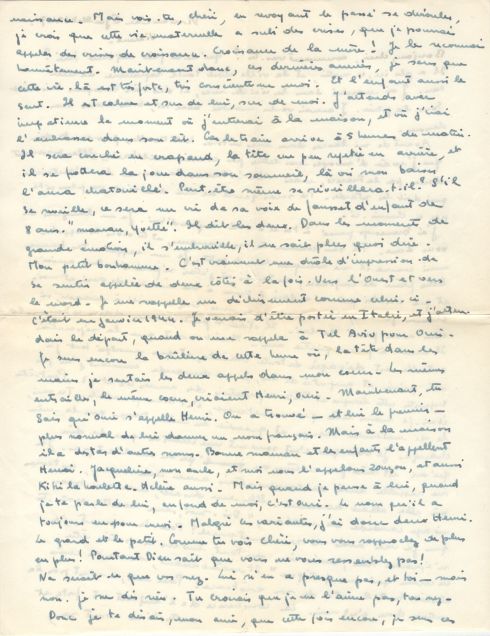 naissance. Mais vois-tu, chéri, en revoyant le passé se dérouler,
je crois que cette vie maternelle a subi des crises, que je pourrai
appeler des crises de croissance. Croissance de la mère! Je le reconnais
honnêtement. Maintenant donc, ces dernières années, je sens que
cette vie-là est très forte, très consciente en moi. Et l'enfant aussi le
sent. Il est calme et sûr de lui, sûr de moi. J'attends avec
impatience le moment où j'entrerai à la maison, et où j'irai
l'embrasser dans son lit. Car le train arrive à 5 heures du matin.
Il sera couché en crapaud, la tête un peu rejetée en arrière, et
il se frottera la joue dans son sommeil, là où mon baiser
l'aura chatouillé. Peut-être même se réveillera-t-il? S'il
se réveille, ce sera un cri de sa voix de fausset d'enfant de
8 ans. "maman, Yvette". Il dit les deux. Dans les moments de
grande émotion, il s'embrouille, il ne sait plus quoi dire.
Mon petit bonhomme. C'est vraiment une drôle d'impression de
se sentir appelée de deux côtés à la fois. Vers l'Ouest et vers
le nord. Je me rappelle un déchirement comme celui-ci.
C'était en janvier 1944. Je venais d'être postée en Italie, et j'atten-
dais le départ, quand on me rappela à Tel Aviv pour Ouri.
Je sens encore la brûlure de cette heure où, la tête dans les
mains, je sentais les deux appels dans mon cœur. Les mêmes
entrailles, le même cœur, criaient Henri, Ouri. Maintenant, tu
sais qu'Ouri s'appelle Henri. On a trouvé - et lui le premier -
plus normal de lui donner un nom français. Mais à la maison
il a des tas d'autres noms. Bonne maman et les enfants l'appellent
Henri. Jacqueline, mon oncle, et moi nous l'appelons Zouzou, et aussi
Kiki la houlette. Hélène aussi. Mais quand je pense à lui, quand
je te parle de lui, au fond de moi, c'est Ouri. Le nom qu'il a
toujours eu pour moi. Malgré ces variantes, j'ai donc deux Henri.
Le grand et le petit. Comme tu vois chéri, vous vous rapprochez de plus
en plus! Pourtant Dieu sait que vous ne vous ressemblez pas!
Ne serait-ce que vos nez. Lui n'en a presque pas, et toi - mais
non. je ne dis rien. Tu croirais que je ne l'aime pas, ton nez.
Donc je te disais, mon ami, que cette fois encore, je sens ces